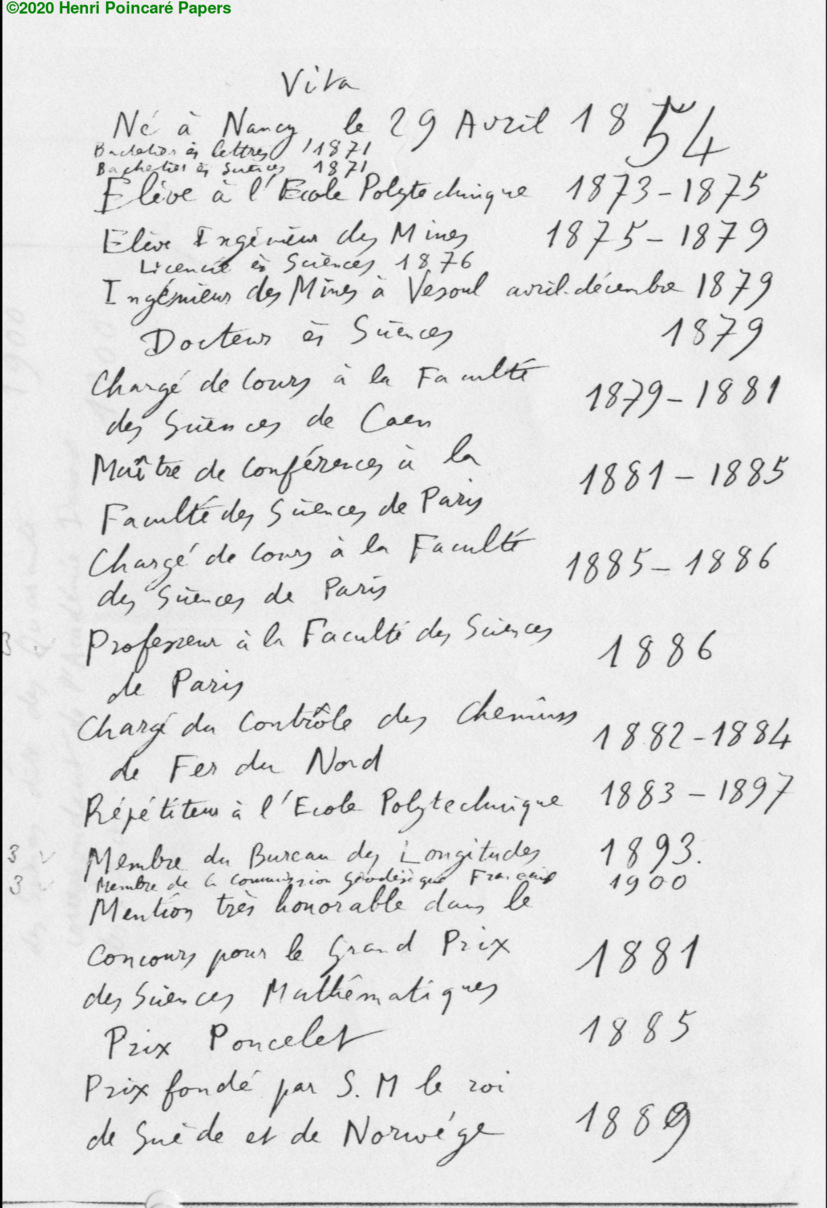 ©2020 Henri Poincaré Papers
Vita
Né à Nancy le 29 Avril 1854
Bachelier ès lettres 1871
Bachelier ès Sciences 1871
Elève à l'Ecole Polytechnique 1873-1875
Elève Ingénieur des Mines 1875-1879
Licencié ès Sciences 1876
Ingénieur des Mines à Vesoul avril-décembre 1879
Docteur ès Sciences 1879
Chargé de Cours à la Faculté
des Sciences de Caen 1879-1881
Maître de Conférences à la
Faculté des Sciences de Paris 1881-1885
Chargé de Cours à la Faculté
des Sciences de Paris 1885-1886
3
Professeur à la Faculté des Sciences
de Paris 1886
Chargé du Contrôle des Chemins
de Fer du Nord 1882-1884
Répétiteur à l'Ecole Polytechnique 1883-1897
3 Membre du Bureau des Longitudes 1893.
3 Membre de la Commission Géodésique Française 1900
Mention très honorable dans le
Concours pour le Grand Prix
des Sciences Mathématiques 1881
Prix Poncelet 1885
Prix fondé par S. M le roi
de Suède et de Norwége 1889